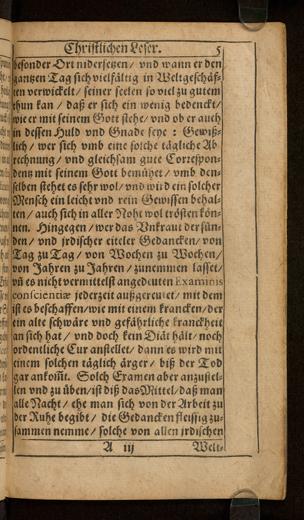 Christlichen Leser. 5
besonder Ort nidersetzen / und wann er den
gantzen Tag sich vielfältig in Weltgeschäf-
ten verwickelt / seiner seelen so viel zu gutem
thun kan / daß er sich ein wenig bedenckt /
wie er mit seinem Gott stehe / und ob er auch
in dessen Huld und Gnade seye : Gewiß-
lich / wer sich umb eine solche tägliche Ab
rechnung / und gleichsam gute Correspon-
dentz mit seinem Gott bemühet / umb den-
selben stehet es sehr wol / und wird ein solcher
Mensch ein leicht und rein Gewissen behal-
ten / auch sich in aller Noht wol trösten kön-
nen. Hingegen / wer das Unkraut der sün-
den / und jrdischer eiteler Gedancken / von
Tag zu Tag / von Wochen zu Wochen /
von Jahren zu Jahren / zunemmen lasset /
uñ es nicht vermittelst angedeuten Examinis
conscientiæ jederzeit außgereutet / mit dem
ist es beschaffen / wie mit einem krancken / der
ein alte schwäre und gefährliche kranckheit
an sich hat / und doch kein Diät hält / noch
ordentliche Cur anstellet / dann es wird mit
einem solchen täglich ärger / biß der Tod
gar ankom̃t. Solch Examen aber anzustel-
len und zu üben / ist diß das Mittel / daß man
alle Nacht / ehe man sich von der Arbeit zu
der Ruhe begibt / die Gedancken fleissig zu-
sammen nemme / solche von allen jrdischen
A iij Welt-